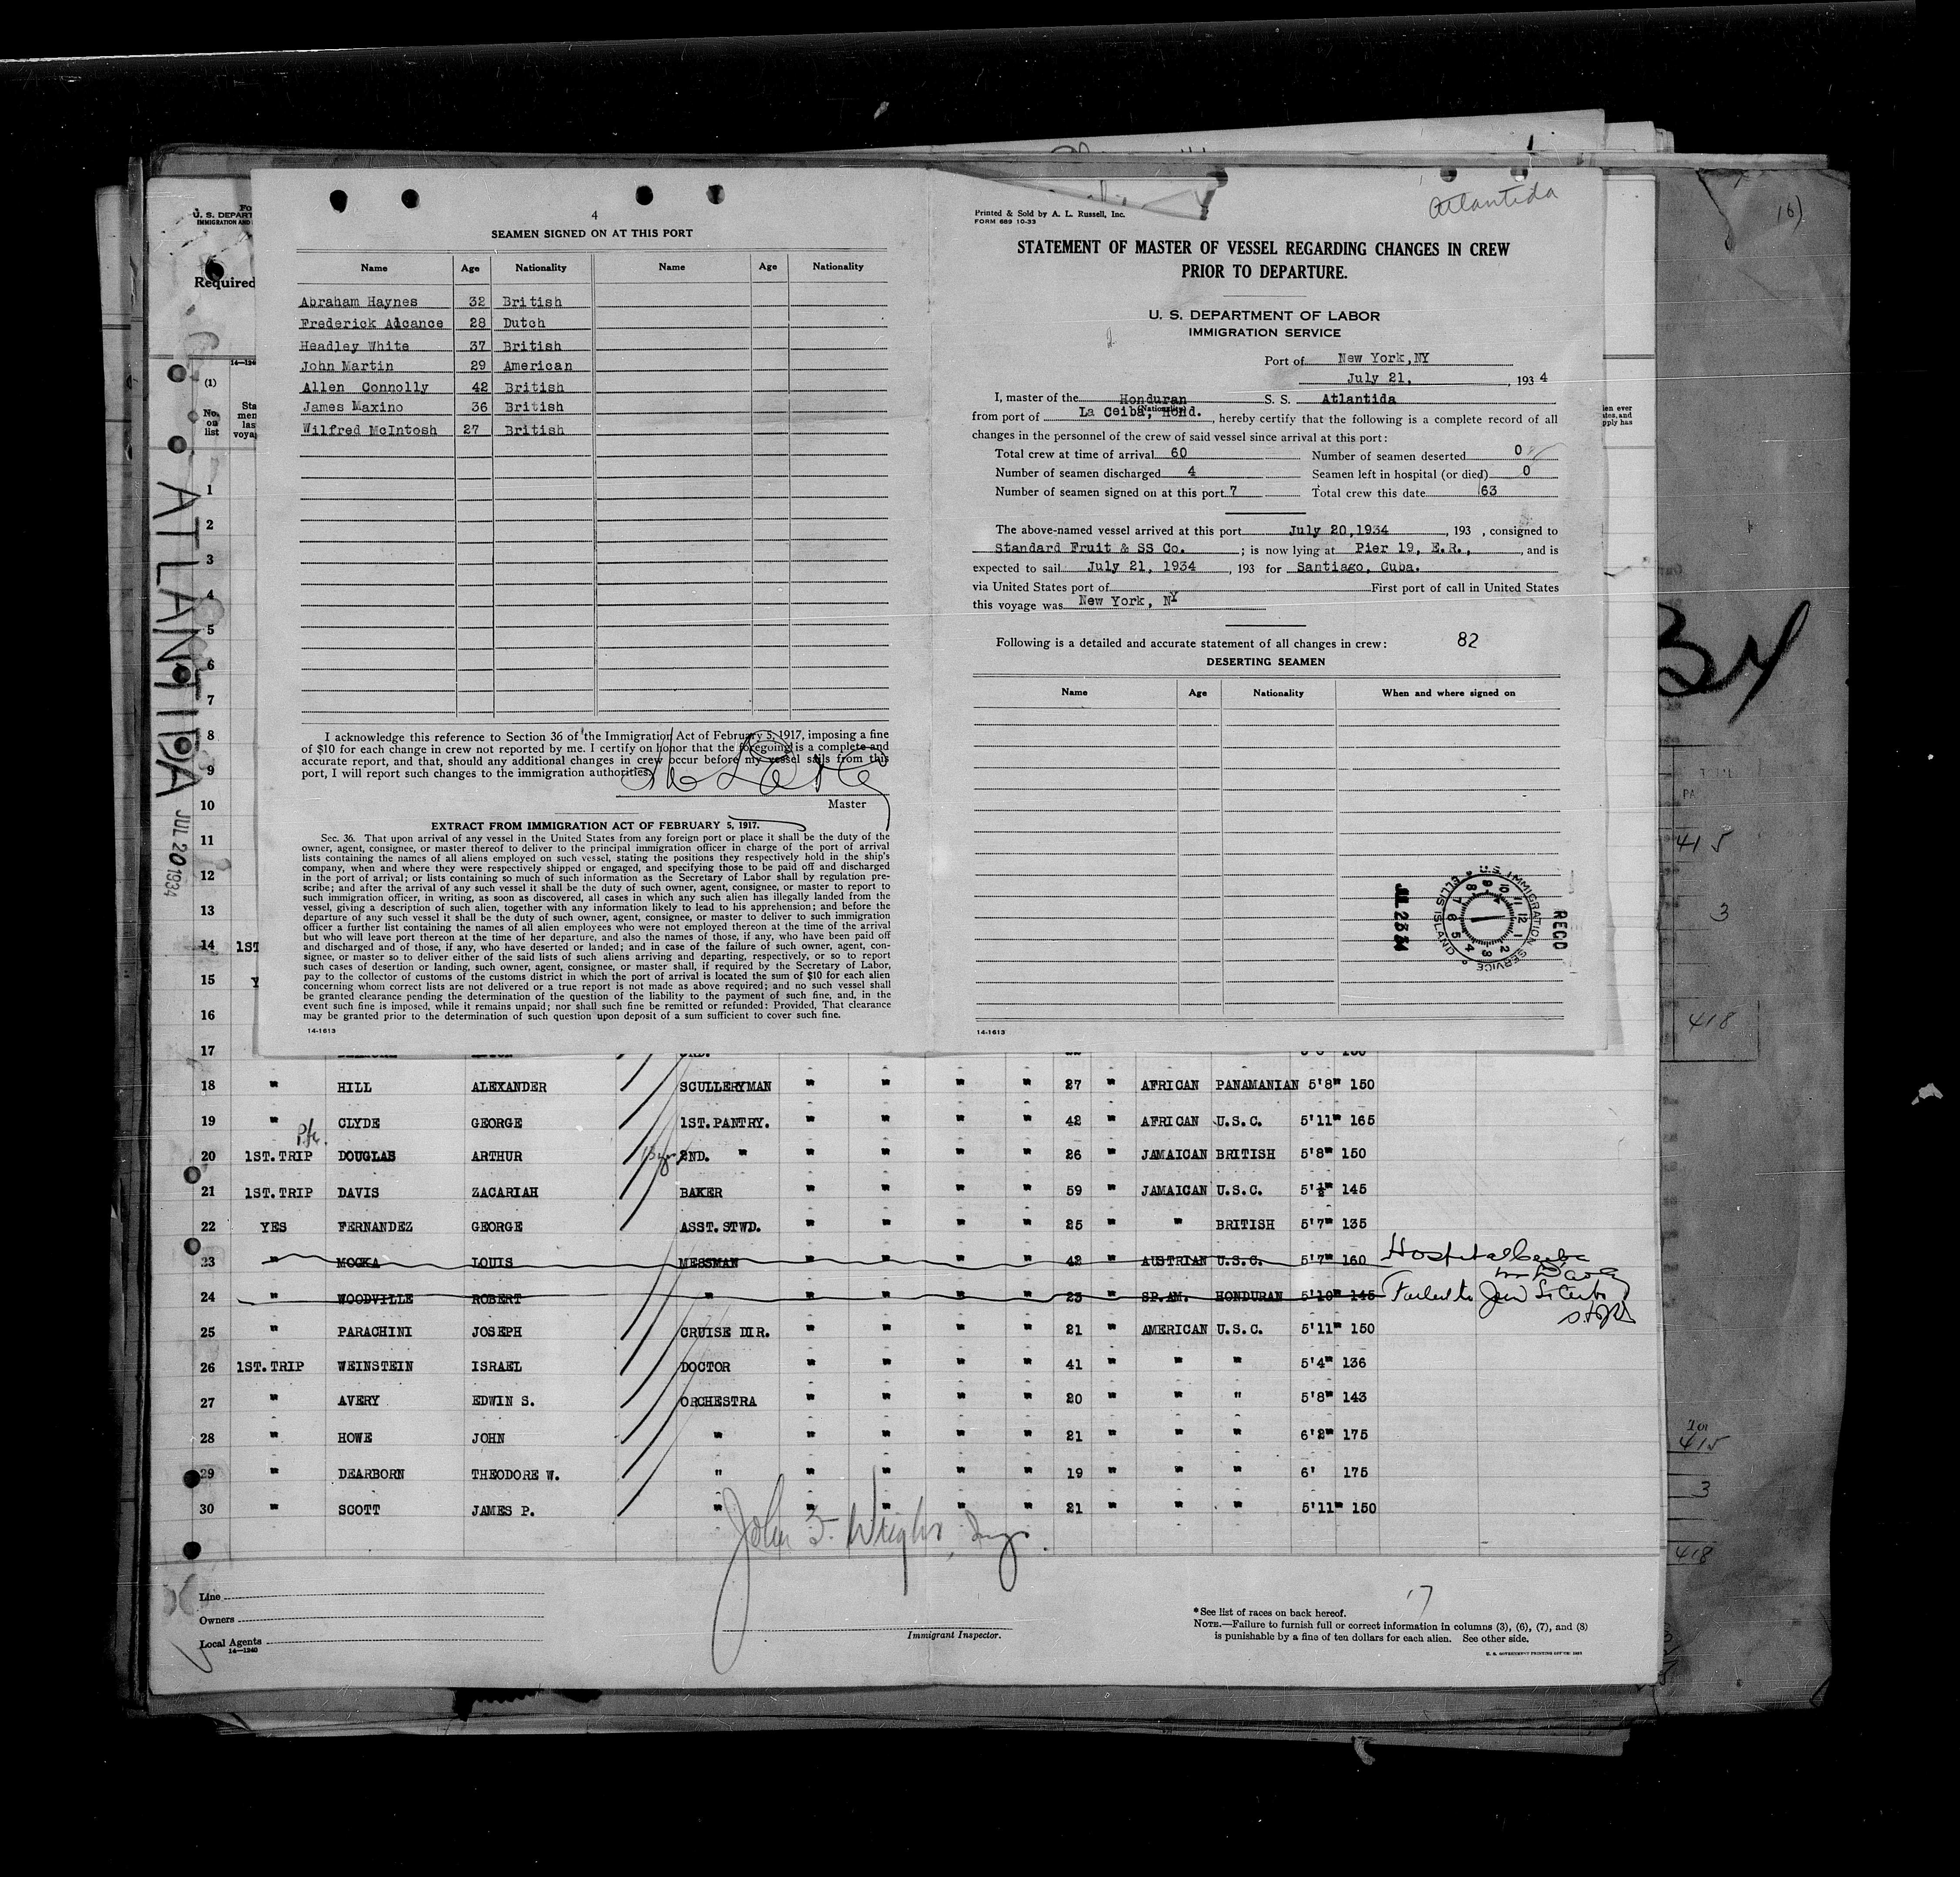 4
SEAMEN SIGNED ON AT THIS PORT
Name Age Nationality Name Age Nationality
Abraham Haynes 32 British
Frederick Alcance 28 Dutch
Headley White 37 British
John Martin 29 American
Allen Connolly 42 British
James Maxino 36 British
Wilfred McIntosh 27 British
I acknowledge this reference to Section 36 of the Immigration Act of February 5, 1917, imposing a fine
of $10 for each change in crew not reported by me. I certify on honor that the foregoing is a complete and
accurate report, and that, should any additional changes in crew occur before my vessel sails from this
port, I will report such changes to the immigration authorities.
Master
EXTRACT FROM IMMIGRATION ACT OF FEBRUARY 5, 1917.
Sec. 36. That upon arrival of any vessel in the United States from any foreign port or place it shall be the duty of the
owner, agent, consignee, or master thereof to deliver to the principal immigration officer in charge of the port of arrival
lists containing the names of all aliens employed on such vessel, stating the positions they respectively hold in the ship's
company, when and where they were respectively shipped or engaged, and specifying those to be paid off and discharged
in the port of arrival; or lists containing so much of such information as the Secretary of Labor shall by regulation pre-
scribe; and after the arrival of any such vessel it shall be the duty of such owner, agent, consignee, or master to report to
such immigration officer, in writing, as soon as discovered, all cases in which any such alien has illegally landed from the
vessel, giving a description of such alien, together with any information likely to lead to his apprehension; and before the
departure of any such vessel it shall be the duty of such owner, agent, consignee, or master to deliver to such immigration
officer a further list containing the names of all alien employees who were not employed thereon at the time of the arrival
but who will leave port thereon at the time of her departure, and also the names of those, if any, who have been paid off
and discharged and of those, if any, who have deserted or landed; and in case of the failure of such owner, agent, con-
signee, or master so to deliver either of the said lists of such aliens arriving and departing, respectively, or so to report
such cases of desertion or landing, such owner, agent, consignee, or master shall, if required by the Secretary of Labor,
pay to the collector of customs of the customs district in which the port of arrival is located the sum of $10 for each alien
concerning whom correct lists are not delivered or a true report is not made as above required; and no such vessel shall
be granted clearance pending the determination of the question of the liability to the payment of such fine, and, in the
event such fine is imposed, while it remains unpaid; nor shall such fine be remitted or refunded: Provided, That clearance
may be granted prior to the determination of such question upon deposit of a sum sufficient to cover such fine.
14-1613
Atlantida
Printed & Sold by A. L. Russell, Inc.
FORM 689 10-33
STATEMENT OF MASTER OF VESSEL REGARDING CHANGES IN CREW
PRIOR TO DEPARTURE.
U. S. DEPARTMENT OF LABOR
IMMIGRATION SERVICE
Port of New York, NY
July 21, , 193 4
I, master of the Honduran S. S. Atlantida
(Nationality)
from port of La Ceiba, Hond. , hereby certify that the following is a complete record of all
changes in the personnel of the crew of said vessel since arrival at this port:
Total crew at time of arrival 60 Number of seamen deserted 0
Number of seamen discharged 4 Seamen left in hospital (or died) 0
Number of seamen signed on at this port 7 Total crew this date 63
The above-named vessel arrived at this port July 20, 1934 , 193 , consigned to
Standard Fruit & SS Co. ; is now lying at Pier 19, E.R., , and is
expected to sail July 21, 1934 , 193 for Santiago, Cuba.
via United States port of First port of call in United States
this voyage was New York, NY
Following is a detailed and accurate statement of all changes in crew: 82
DESERTING SEAMEN
Name Age Nationality When and where signed on
U.S. IMMIGRATION SERVICE ELLIS ISLAND
RECD
JUL 23 34
14-1613
U. S. DEPART
IMMIGRATION AND
Required
14-124
(1)
No. on list
Sta
men
las
voya
ATLANTIDA
JUL 20 1934
1
2
3
4
5
6
7
8
9
10
11
12
13
14 1ST
15 Y
16
17
18 " HILL ALEXANDER SCULLERYMAN " " " " 27 " AFRICAN PANAMANIAN 5'8" 150
19 " CLYDE GEORGE 1ST.PANTRY. " " " " 42 " AFRICAN U.S.C. 5'11" 165
20 1ST.TRIP DOUGLAS ARTHUR 2ND. " " " " " 26 " JAMAICAN BRITISH 5'8" 150
21 1ST.TRIP DAVIS ZACARIAH BAKER " " " " 59 " JAMAICAN U.S.C. 5'½" 145
22 YES FERNANDEZ GEORGE ASST.STWD. " " " " 25 " " BRITISH 5'7" 135
23 " MOCKA LOUIS MESSMAN " " " " 42 " AUSTRIAN U.S.C. 5'7" 160 Hospital Ceiba
24 " WOODVILLE ROBERT " " " " " 23 " SP.AM. HONDURAN 5'10" 145 Failed to Join
25 " PARACHINI JOSEPH CRUISE DIR. " " " " 21 " AMERICAN U.S.C. 5'11" 150
26 1ST.TRIP WEINSTEIN ISRAEL DOCTOR " " " " 41 " " " 5'4" 136
27 " AVERY EDWIN S. ORCHESTRA " " " " 20 " " " 5'8" 143
28 " HOWE JOHN " " " " " 21 " " " 6'2" 175
29 " DEARBORN THEODORE W. " " " " " 19 " " " 6' 175
30 " SCOTT JAMES P. " " " " " 21 " " " 5'11" 150
John F. Wright, Insp.
Line
Owners
Local Agents
14-1240
Immigrant Inspector.
17
*See list of races on back hereof.
NOTE.—Failure to furnish full or correct information in columns (3), (6), (7), and (8)
is punishable by a fine of ten dollars for each alien. See other side.
U. S. GOVERNMENT PRINTING OFFICE: 1931
34
415
3
418
415
3
418